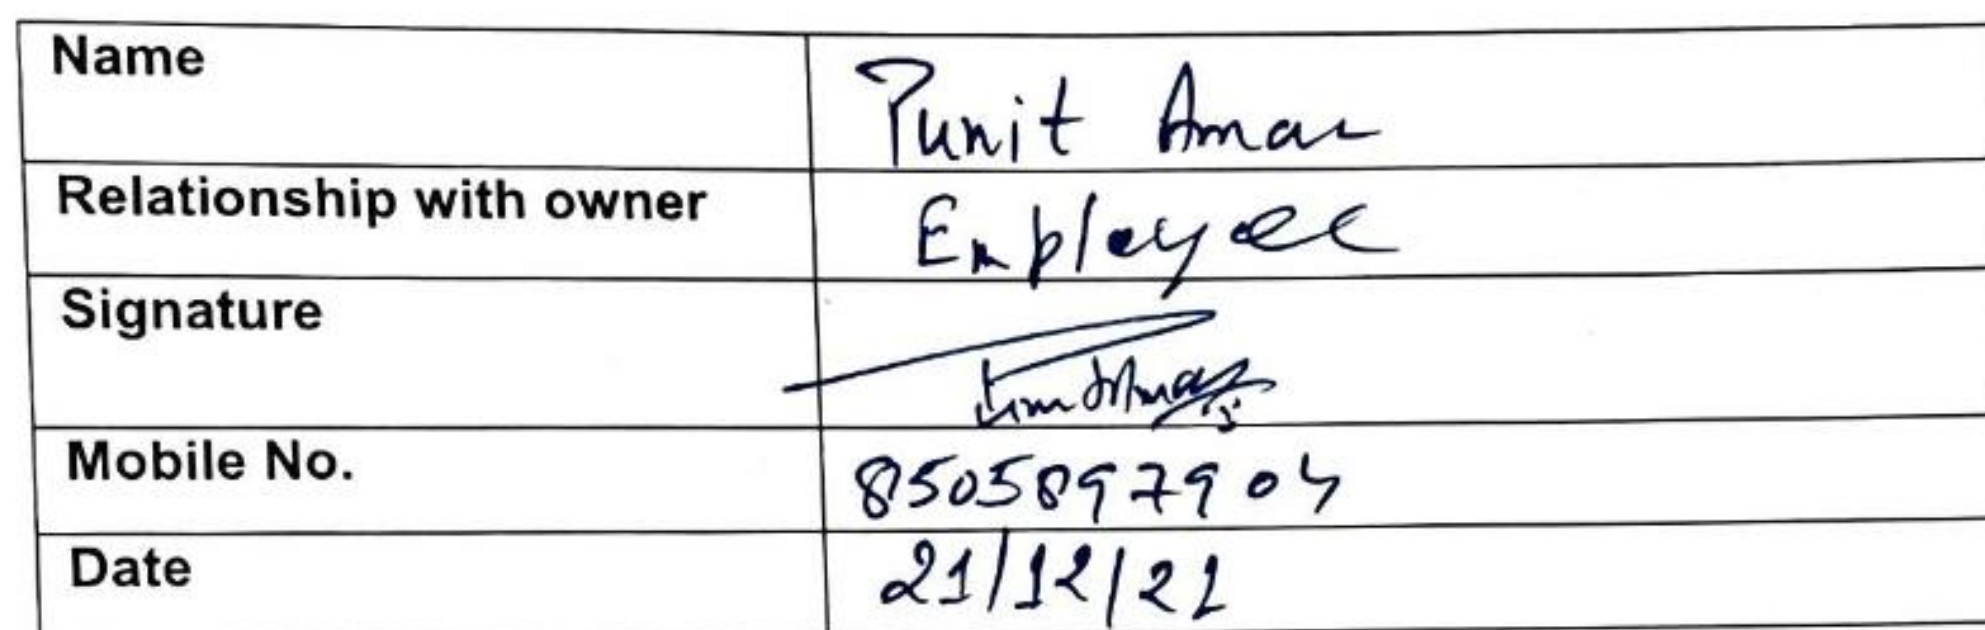 Name Punit Amar
Relationship with owner Employee
Signature
Mobile No. 8505897904
Date 21/12/21